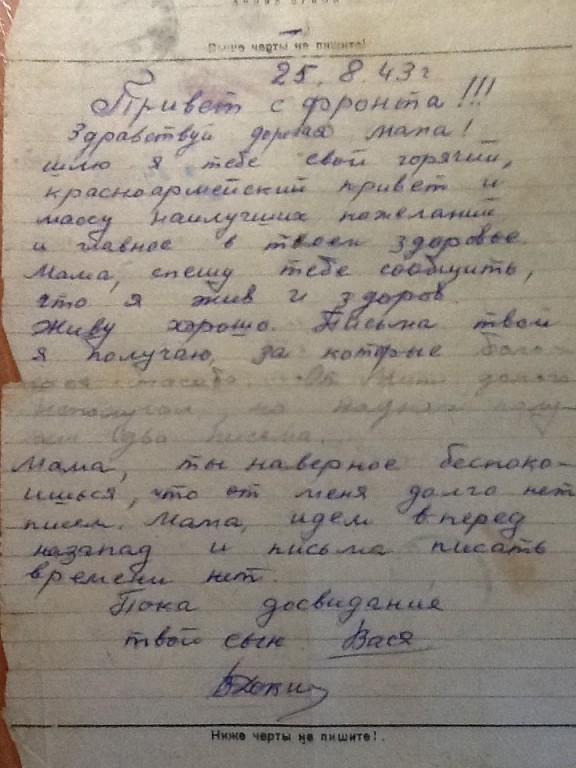 Выше черты не пишите!
25.8.43 г
Привет с фронта!!!
Здравствуй дорогая мама!
шлю я тебе свой горячий,
красноармейский привет и
массу наилучших пожеланий
и главное в твоем здоровье.
Мама, спешу тебе сообщить,
что я жив и здоров.
Живу хорошо. Письма твои
я получаю, за которые
спасибо. От долго
на
два письма.
Мама, ты наверное беспоко-
ишься, что от меня долго нет
писем. Мама, идем вперед
назапад и письма писать
времени нет.
Пока досвидания
твой сын Вася
Ниже черты не пишите!